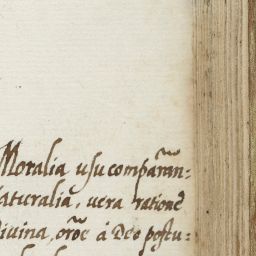 Moralia usu comparãn:
aturalia, uera ratione
iuina, orõe à Deo postu: